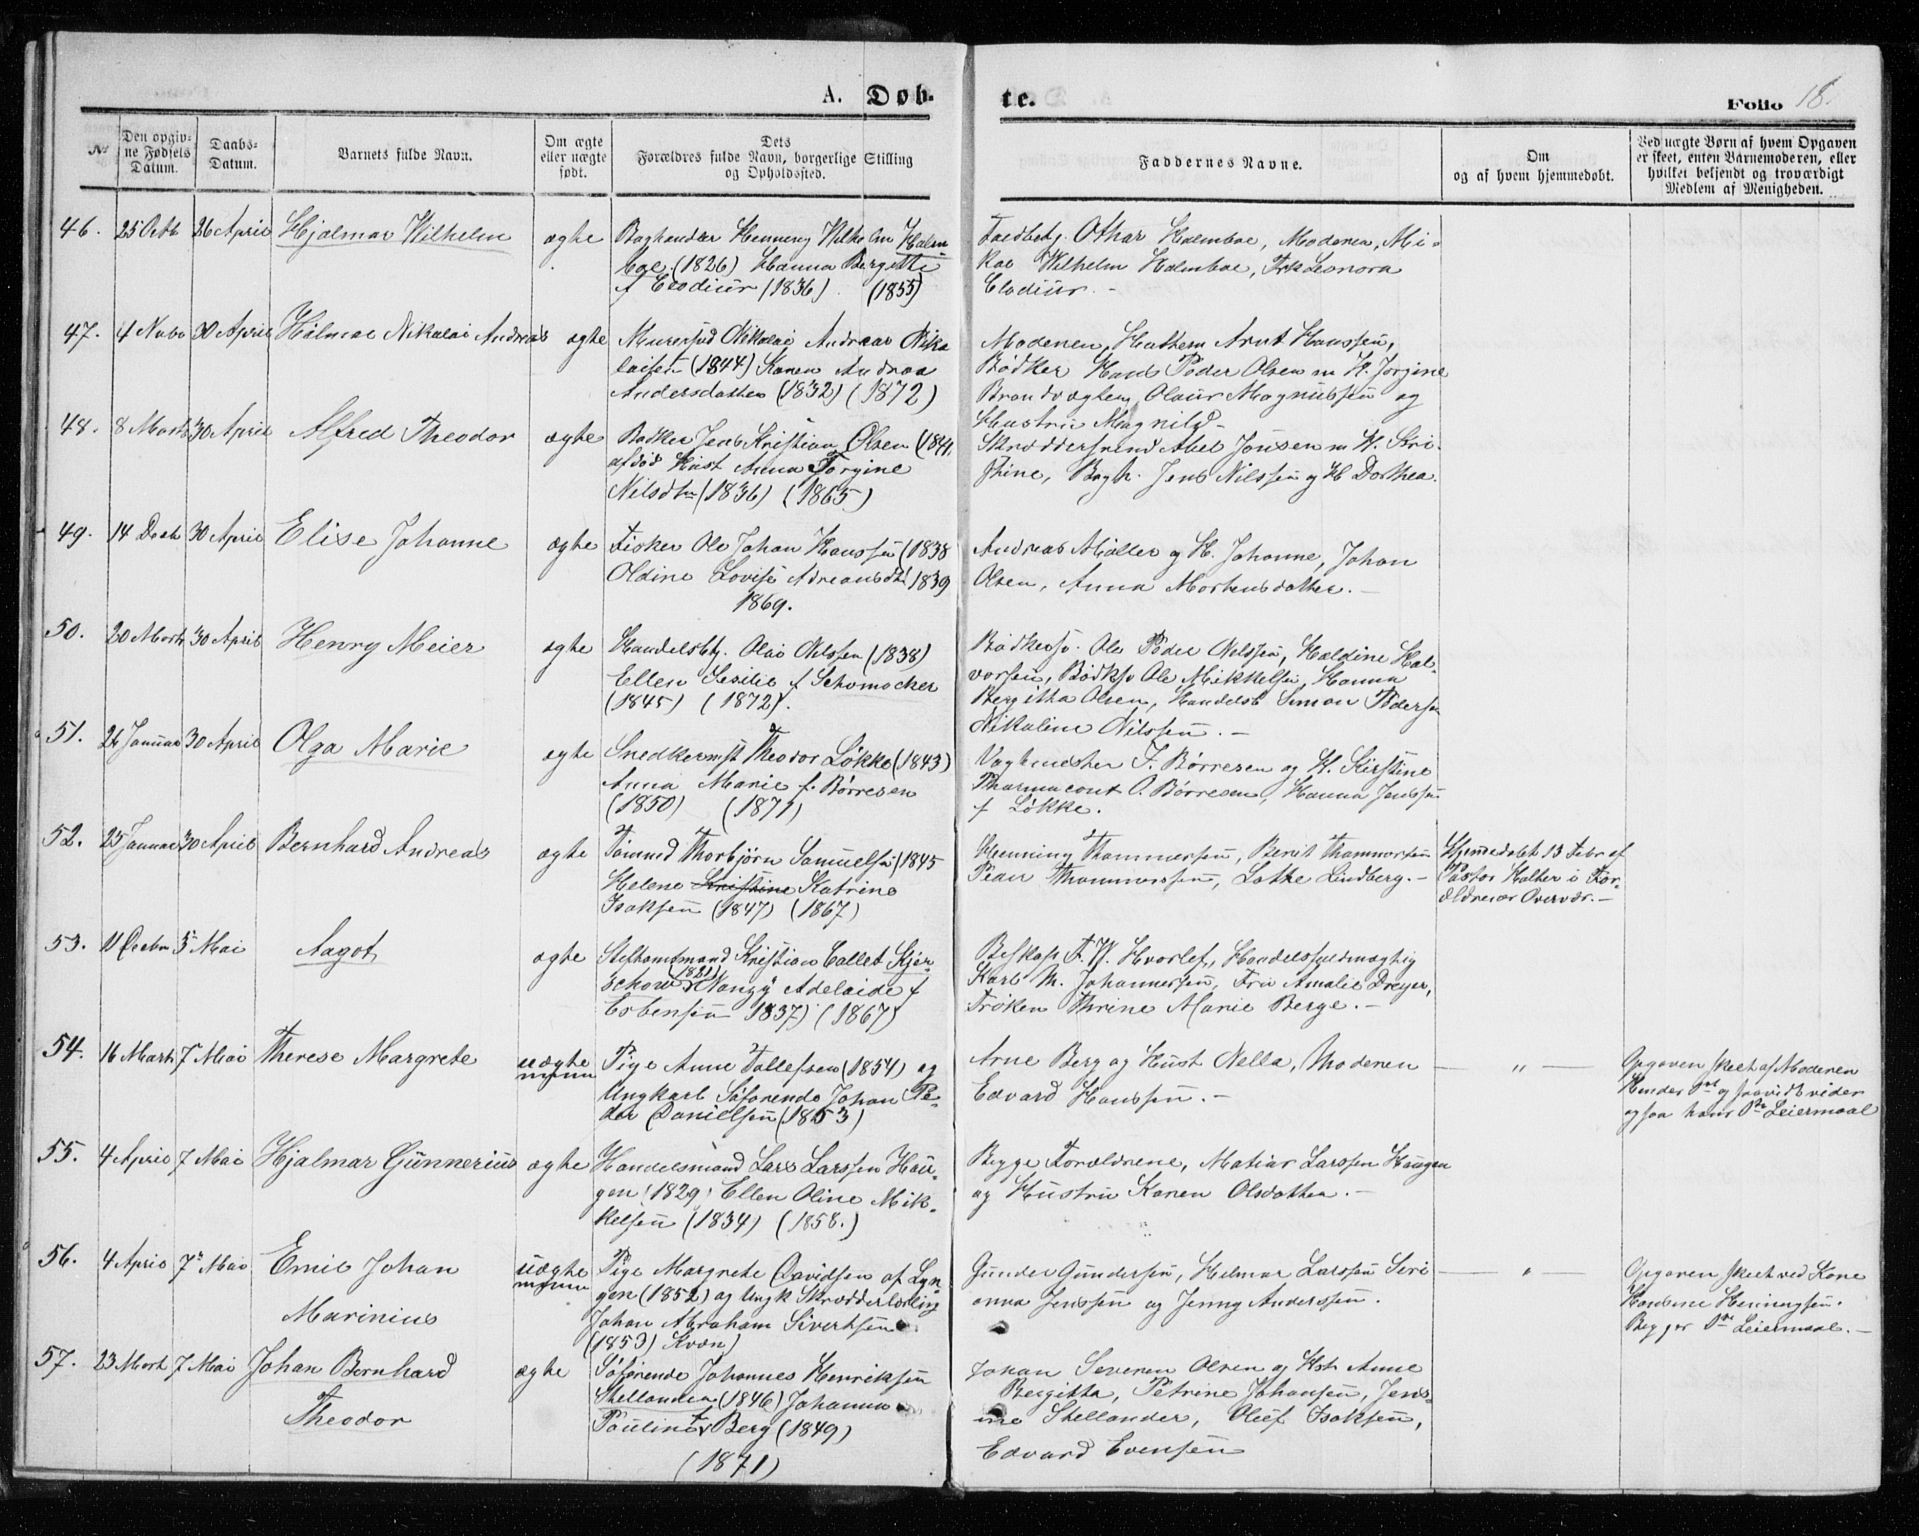 A. Døb-
te.
Folio 18.
No
Den opgiv-
ne Fødsels
Datum.
Daabs-
Datum.
Barnets fulde Navn.
Om ægte
eller uægte
født.
Dets
Forældres fulde Navn, borgerlige Stilling
og Opholdssted.
Faddernes Navne.
Om
og af hvem hjemmedøbt.
Ved uægte Børn af hvem Opgaven
er skeet, enten Barnemoderen, eller
hvilket betjendt og troværdigt
Medlem af Menigheden.
46. 25 Octb 26 April Hjalmar Wilhelm ægte
Boghandler Henning Wilhelm Holm-
boe (1826) Hanna Bergitte
f Clodiur (1836) (1855)
Othar Holmboe, Moderen, Mi-
kal Wilhelm Holmboe, Frk Leonora
Clodiur. -
47. 4 Novb 30 April Hilmar Nikolai Andreas ægte
Murersvd Nikolai Andreas Nika
laisen (1844) Karen Andrea
Andersdatter (1832) (1872)
Moderen, Arnt Hanssen,
Bødker Hans Peder Olsen m H. Jorgine
Brandvægter Olaus Magnussen og
Hustru Magnild -
48. 8 Marts 30 April Alfred Theodor ægte
Bødker Jens Kristian Olsen (1841,
afdød Hust Anna Jorgine
Nilsdtr (1836) (1865)
Skræddersvend Abel Jonsen m H. Kri-
stine, Bogh. Jens Nilssen og H Dorthea.
49. 14 Decb 30 April Elise Johanne ægte
Fisker Ole Johan Hanssen (1838
Oldine Lovise Adreansdtr 1839
1869.
Andreas Møller og H. Johanne, Johan
Olsen, Anna Mortensdatter. -
50. 20 Marts 30 April Henry Meier ægte
Handelsbtj. Olai Nilssen (1838)
Ellen Sesilie f Schomocker
(1845) (1872).
Ole Peder Nilssen, Hældine Hal-
vorsen, Bødksv Ole Mikkelsen, Hanna
Bergitha Olsen, Handelsb Simon Pedersen
Nikoline Nilssen. -
51. 26 Januar 30 April Olga Marie ægte
Snedkermst Theodor Løkke (1843)
Anna Marie f. Børresen
(1850) (1871)
Vagtmester F. Børresen og H. Kirstine
Pharmaceut O. Børresen, Hanna Jenssen
f Løkke.
52. 25 Januar 30 April Bernhard Andreas ægte
Tømmd Thorbjørn Samuelsen 1845
Helene Kristine Katrine
Isaksen (1847) (1867)
Henning Thommassen, Berit Thommassen
Peder Thommassen, Lotte Lindberg. -
Hjemmedøbt 13 Febr af
Pastor Halter i For-
ældrenes Overvær. -
53. 11 Decbr 5 Mai Aagot ægte
Stifthamtmand Kristian Collet Kjer-
schow (1821) Nanzy Adelaide f
Esbensen 1837) (1867)
Beskop F. W. Hvoslef, Handelsfuldmægtig
Karl M. Johannessen, Fru Amalie Dreyer,
Frøken Thrine Marie Berge. -
54. 16 Marts 7 Mai Therese Margrete uægte
Pige Anne Tollefsen (1854) og
Ungkarl Søfarende Johan Pe-
der Danielsen (1853)
Arne Berg og Hust Nella, Moderen
Edvard Hanssen. -
— " —
Opgaven skeet af Moderen
Hendes 1ste og saavidt vides
ogsaa hans 1ste Leiermaal
55. 4 April 7 Mai Hjalmar Gunnerius ægte
Handelsmand Lars Larssen Hau-
gen (1829) Ellen Oline Mik-
kelsen (1834) (1858.)
Begge Forældrene, Matias Larssen Haugen
og Hustru Karen Olsdatter. -
56. 4 April 7 Mai Emil Johan
Marinius uægte
Pige Margrete Davidsen af Lyn-
gen (1852) og Ungk Skrædderlærling
Johan Abraham Sivertsen
(1853) Kvæn)
Gunder Gundersen, Hilmar Larssen Seri
anna Jenssen og Jenny Anderssen.
— " —
Opgaven skeet ved Kone
Hansine Henningsen.
Begges 1ste Leiermaal. -
57. 23 Marts 7 Mai Johan Bernhard
Theodor ægte
Søfarende Johannes Henriksen
Stellander (1846) Johanna
Pauline f Berg (1849)
(1871)
Johan Severin Olsen og Hst Anne
Bergitta, Petrine Johansen, Jen-
sine Stellander, Oluf Isaksen,
Edvard Evensen